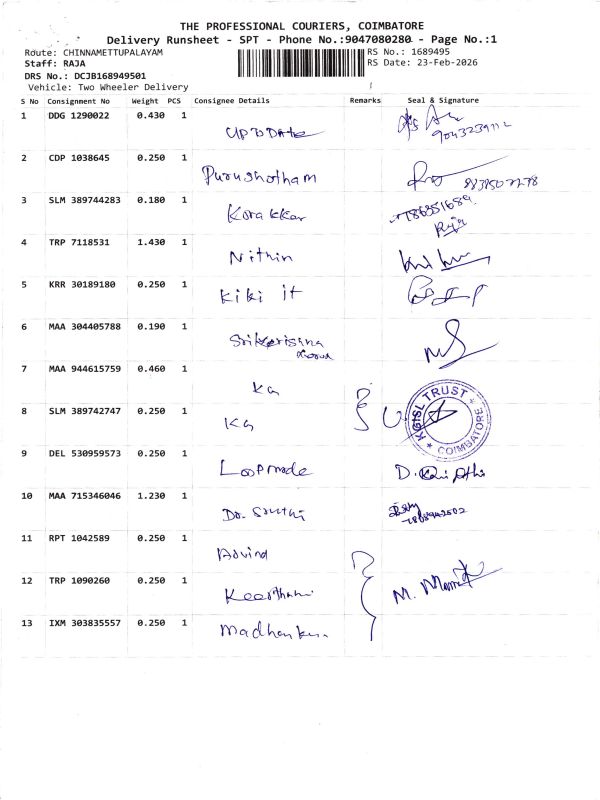 THE PROFESSIONAL COURIERS, COIMBATORE
Delivery Runsheet - SPT - Phone No.:9047080280 - Page No.:1
Route: CHINNAMETTUPALAYAM RS No.: 1689495
Staff: RAJA RS Date: 23-Feb-2026
DRS No.: DCJB168949501
Vehicle: Two Wheeler Delivery
S No Consignment No Weight PCS Consignee Details Remarks Seal & Signature
1 DDG 1290022 0.430 1
UPTODATE
2 CDP 1038645 0.250 1
Purushotham
3 SLM 389744283 0.180 1
Korakkar
Raja
4 TRP 7118531 1.430 1
Nithin
5 KRR 30189180 0.250 1
Kiki it
6 MAA 304405788 0.190 1
7 MAA 944615759 0.460 1
KG
8 SLM 389742747 0.250 1
KG
KGISL TRUST
COIMBATORE
9 DEL 530959573 0.250 1
Loopmode
10 MAA 715346046 1.230 1
Dr. Santhi
11 RPT 1042589 0.250 1
Arvind
12 TRP 1090260 0.250 1
Keerthani
M.
13 IXM 303835557 0.250 1